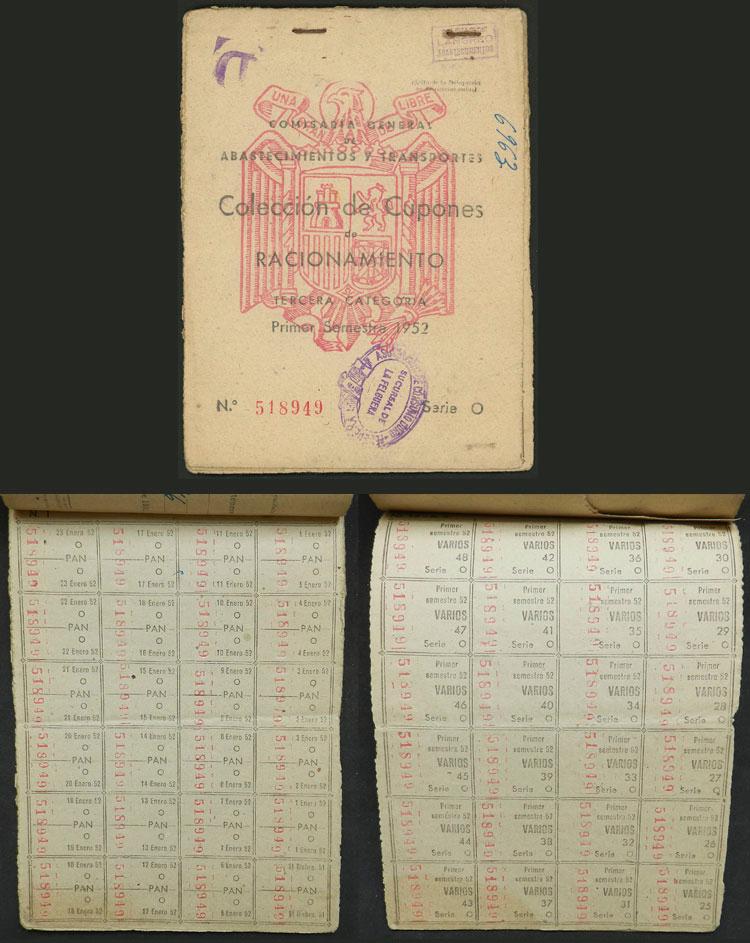 UNA
LIBRE
COMISARÍA GENERAL
DE
ABASTECIMIENTOS Y TRANSPORTES
6963
Colección de Cupones
de
RACIONAMIENTO
TERCERA CATEGORÍA
Primer Semestre 1952
SUCURSAL DE
LA FELGUERA
N.° 518949
Serie O
23 Enero 52 17 Enero 52 11 Enero 52 5 Enero 52
O O O O
PAN PAN PAN PAN
O O O O
23 Enero 52 17 Enero 52 11 Enero 52 5 Enero 52
518949 518949 518949 518949
22 Enero 52 16 Enero 52 10 Enero 52 4 Enero 52
O O O O
PAN PAN PAN PAN
O O O O
22 Enero 52 16 Enero 52 10 Enero 52 4 Enero 52
518949 518949 518949 518949
21 Enero 52 15 Enero 52 9 Enero 52 3 Enero 52
O O O O
PAN PAN PAN PAN
O O O O
21 Enero 52 15 Enero 52 9 Enero 52 3 Enero 52
518949 518949 518949 518949
20 Enero 52 14 Enero 52 8 Enero 52 2 Enero 52
O O O O
PAN PAN PAN PAN
O O O O
20 Enero 52 14 Enero 52 8 Enero 52 2 Enero 52
518949 518949 518949 518949
19 Enero 52 13 Enero 52 7 Enero 52 1 Enero 52
O O O O
PAN PAN PAN PAN
O O O O
19 Enero 52 13 Enero 52 7 Enero 52 1 Enero 52
518949 518949 518949 518949
18 Enero 52 12 Enero 52 6 Enero 52
O O O O
PAN PAN PAN PAN
O O O O
18 Enero 52 12 Enero 52 6 Enero 52
518949 518949 518949 518949
Primer Primer Primer Primer
semestre 52 semestre 52 semestre 52 semestre 52
VARIOS VARIOS VARIOS VARIOS
48 42 36 30
Serie O Serie O Serie O Serie O
518949 518949 518949 518949
Primer Primer Primer Primer
semestre 52 semestre 52 semestre 52 semestre 52
VARIOS VARIOS VARIOS VARIOS
47 41 35 29
Serie O Serie O Serie O Serie O
518949 518949 518949 518949
Primer Primer Primer Primer
semestre 52 semestre 52 semestre 52 semestre 52
VARIOS VARIOS VARIOS VARIOS
46 40 34 28
Serie O Serie O Serie O Serie O
518949 518949 518949 518949
Primer Primer Primer Primer
semestre 52 semestre 52 semestre 52 semestre 52
VARIOS VARIOS VARIOS VARIOS
45 39 33 27
Serie O Serie O Serie O Serie O
518949 518949 518949 518949
Primer Primer Primer Primer
semestre 52 semestre 52 semestre 52 semestre 52
VARIOS VARIOS VARIOS VARIOS
44 38 32 26
Serie O Serie O Serie O Serie O
518949 518949 518949 518949
Primer Primer Primer Primer
semestre 52 semestre 52 semestre 52 semestre 52
VARIOS VARIOS VARIOS VARIOS
43 37 31 25
Serie O Serie O Serie O Serie O
518949 518949 518949 518949